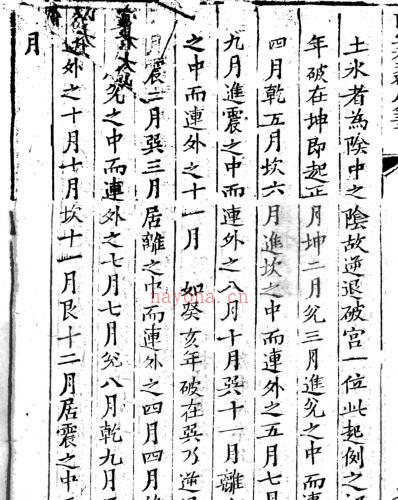 土水者為陰中之陰故逆退破宮一位此起例之
年破在坤即起正月坤二月兌三月進兌之中而連
四月乾五月坎六月進坎之中而連外之五月七
九月進震之中而連外之八月十月巽十一月離
之中而連外之十一月 如癸亥年破在巽乃逆
月震二月巽三月居離之中而連外之四月四月
兌之中而連外之七月七月兌八月乾九月
外之十月十月坎十一月艮十二月居震之中
月
nayona.cn